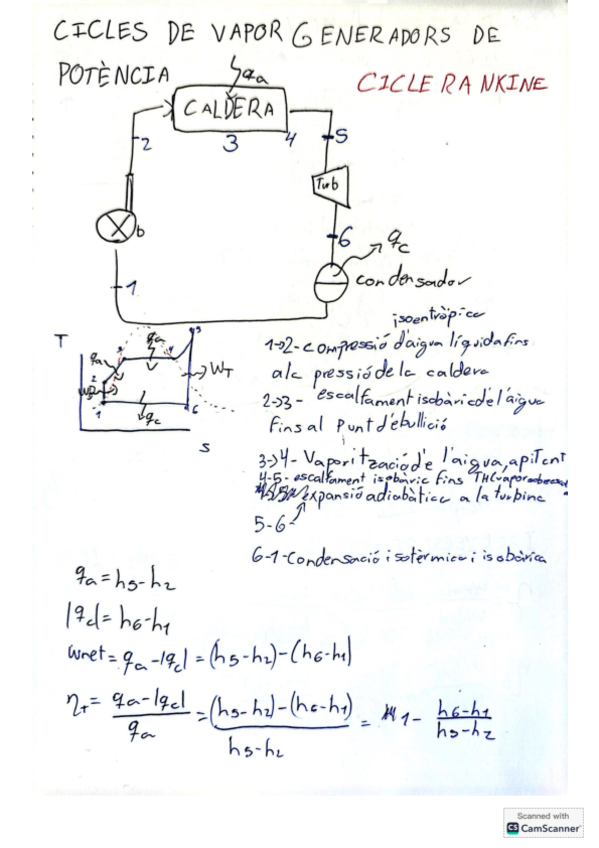 CICLES DE VAPOR GENERADORS DE
POTÈNCIA
CICLE RANKINE
qa
CALDERA
2
3
4
5
Turb
b
6
qc
condensador
1
T
qa
qa
3
4
5
2
WB
WT
1
qc
6
S
isoentròpica
1→2- compressió d'aigua líquida fins
a la pressió de la caldera
2→3- escalfament isobàric de l'aigua
fins al punt d'ebullició
3→4- Vaporització de l'aigua, a p i T cnt
4-5- escalfament isobàric fins TH (vapor
expansió adiabàtica a la turbina
5-6-
6-1-Condensació isotèrmica i isobàrica
qa = h5-h2
|qc| = h6-h1
wnet = qa-|qc| = (h5-h2)-(h6-h1)
ηT = qa-|qc| / qa = (h5-h2)-(h6-h1) / h5-h2 = 1 - h6-h1 / h5-h2
Scanned with
CS CamScanner